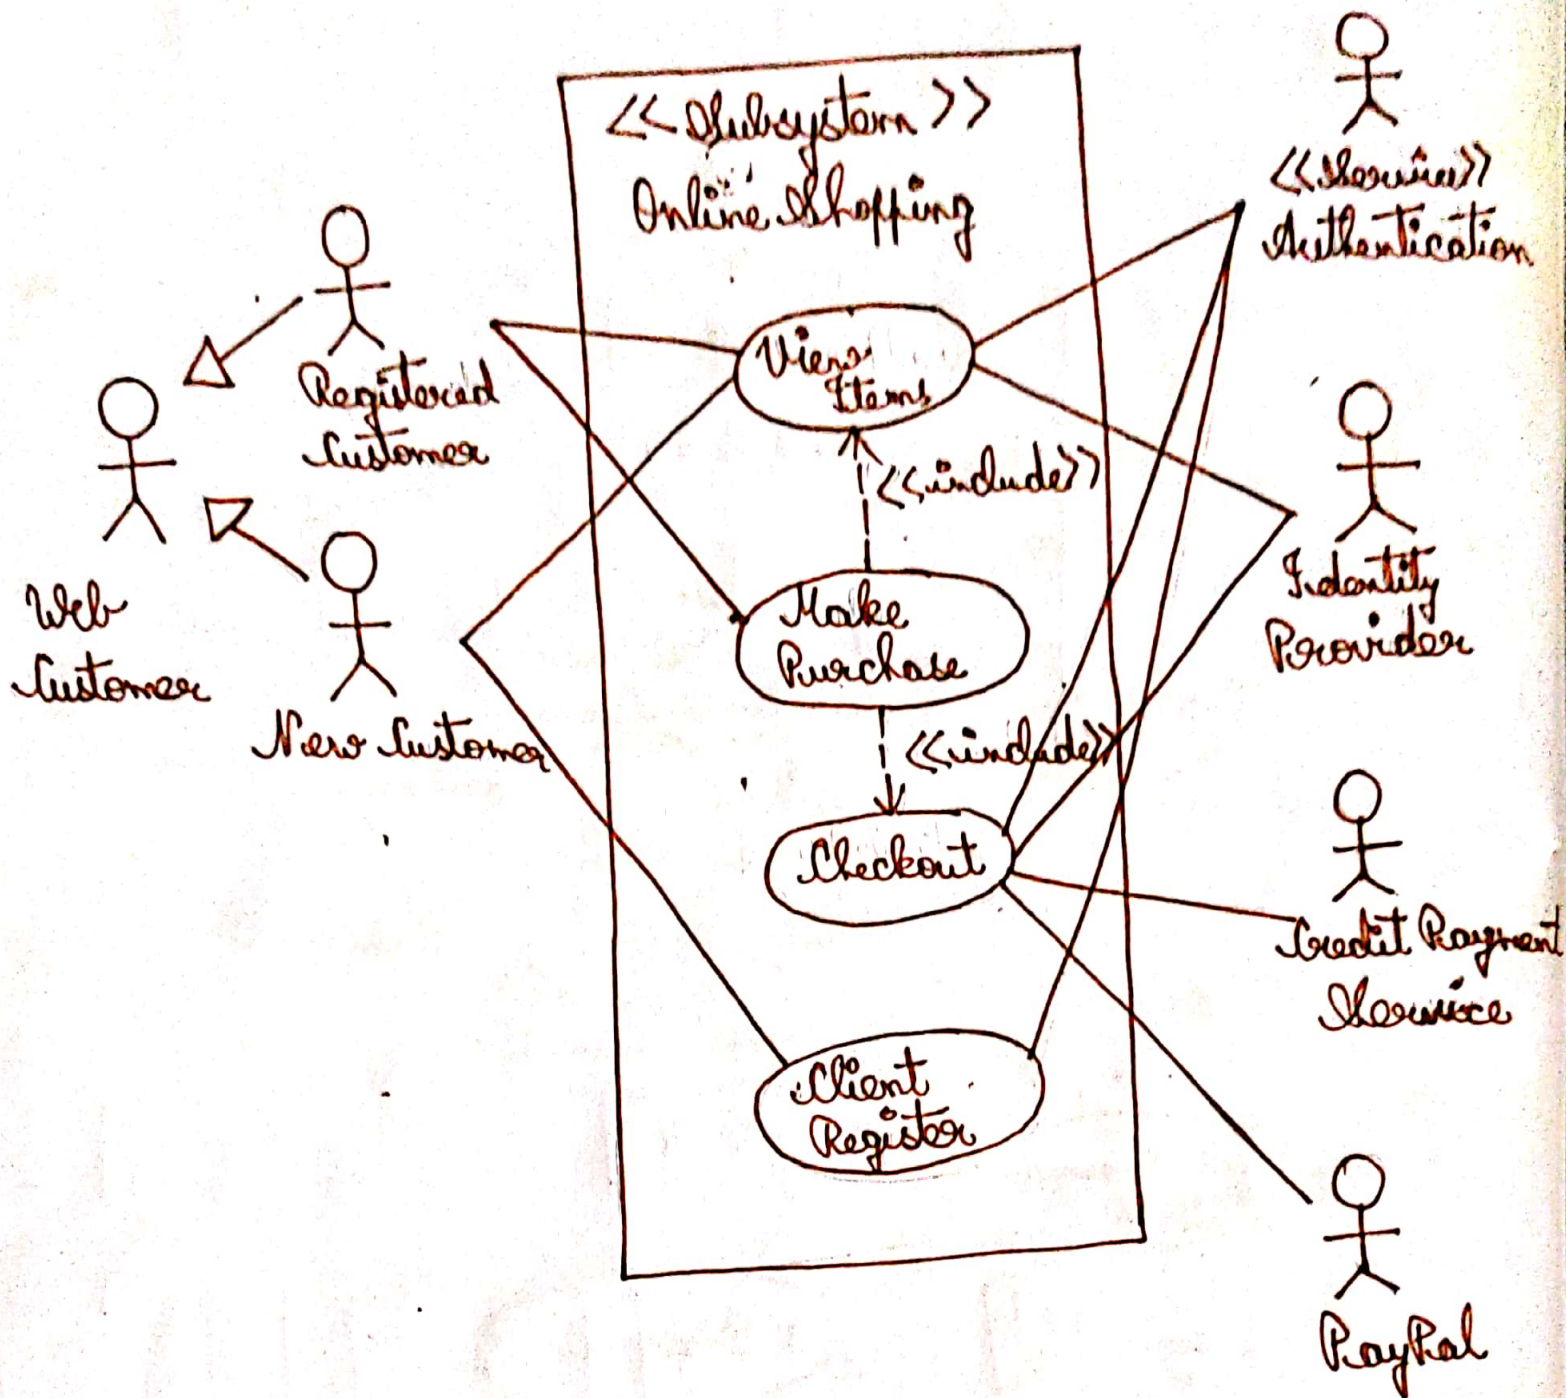 <<Subsystem>>
Online Shopping
Registered
Customer
Web
Customer
New Customer
View
Items
<<include>>
Make
Purchase
<<include>>
Checkout
Client
Register
<<Service>>
Authentication
Identity
Provider
Credit Payment
Service
PayPal